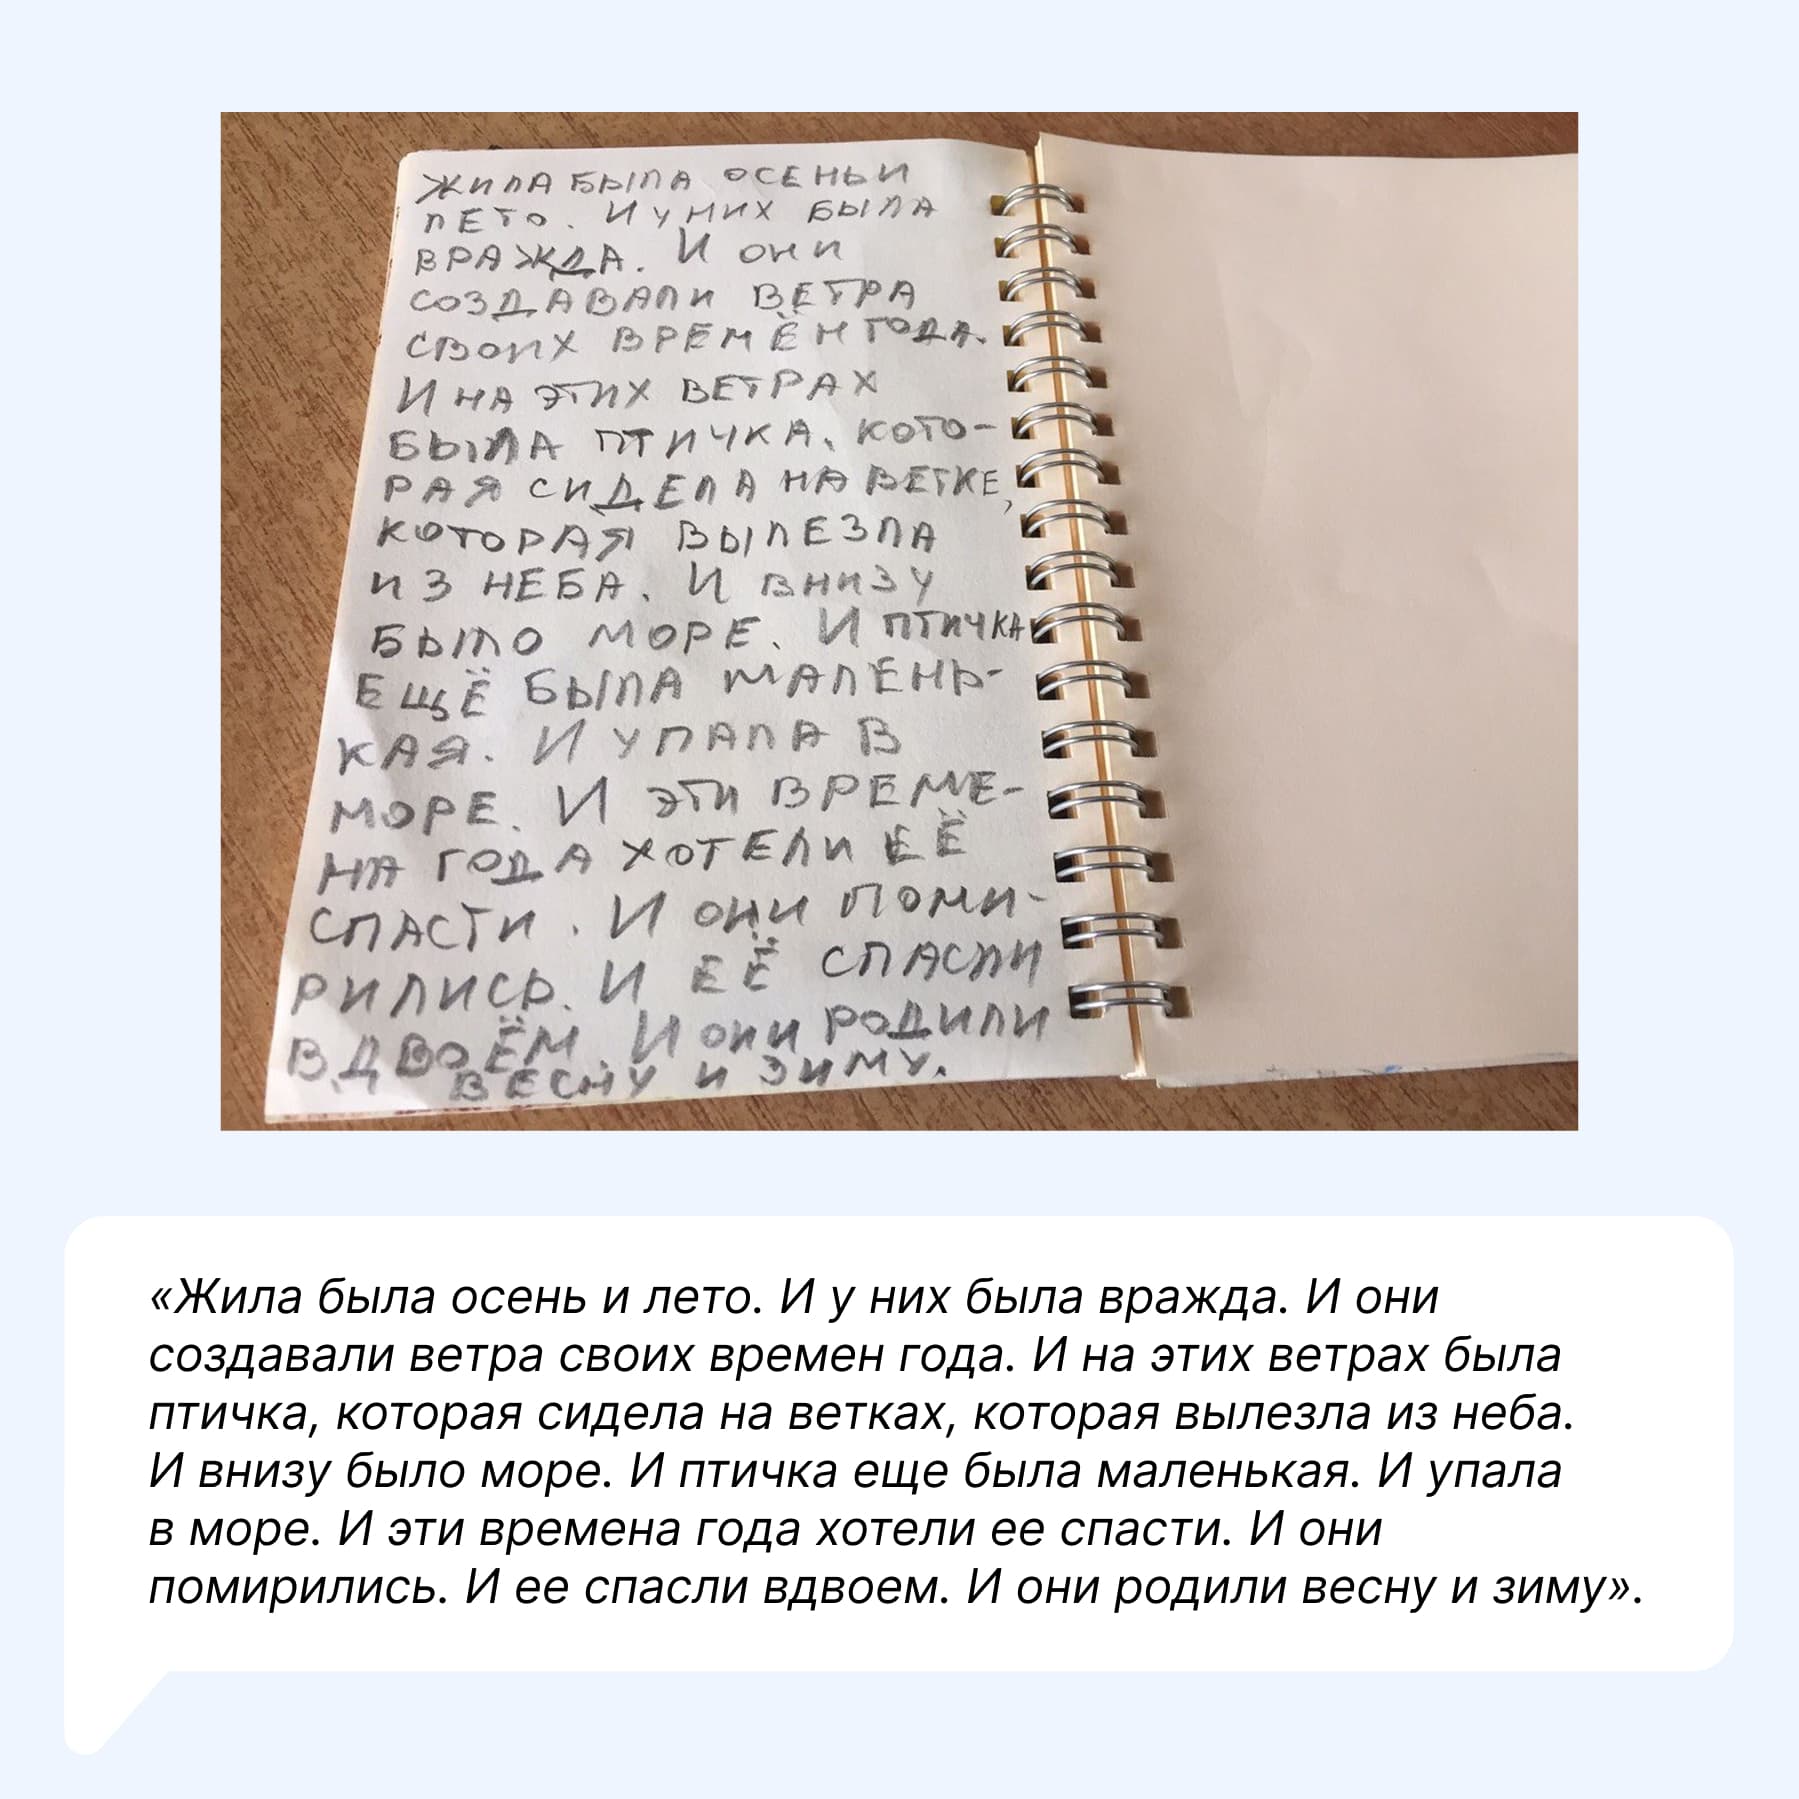 ЖИЛА БЫЛА ОСЕНЬ И
ЛЕТО. И У НИХ БЫЛА
ВРАЖДА. И ОНИ
СОЗДАВАЛИ ВЕТРА
СВОИХ ВРЕМЁН ГОДА.
И НА ЭТИХ ВЕТРАХ
БЫЛА ПТИЧКА, КОТО-
РАЯ СИДЕЛА НА ВЕТКЕ,
КОТОРАЯ ВЫЛЕЗЛА
ИЗ НЕБА. И ВНИЗУ
БЫЛО МОРЕ. И ПТИЧКА
ЕЩЁ БЫЛА МАЛЕНЬ-
КАЯ. И УПАЛА В
МОРЕ. И ЭТИ ВРЕМЕ-
НА ГОДА ХОТЕЛИ ЕЁ
СПАСТИ. И ОНИ ПОМИ-
РИЛИСЬ. И ЕЁ СПАСЛИ
ВДВОЁМ. И ОНИ РОДИЛИ
ВЕСНУ И ЗИМУ.
«Жила была осень и лето. И у них была вражда. И они
создавали ветра своих времен года. И на этих ветрах была
птичка, которая сидела на ветках, которая вылезла из неба.
И внизу было море. И птичка еще была маленькая. И упала
в море. И эти времена года хотели ее спасти. И они
помирились. И ее спасли вдвоем. И они родили весну и зиму».